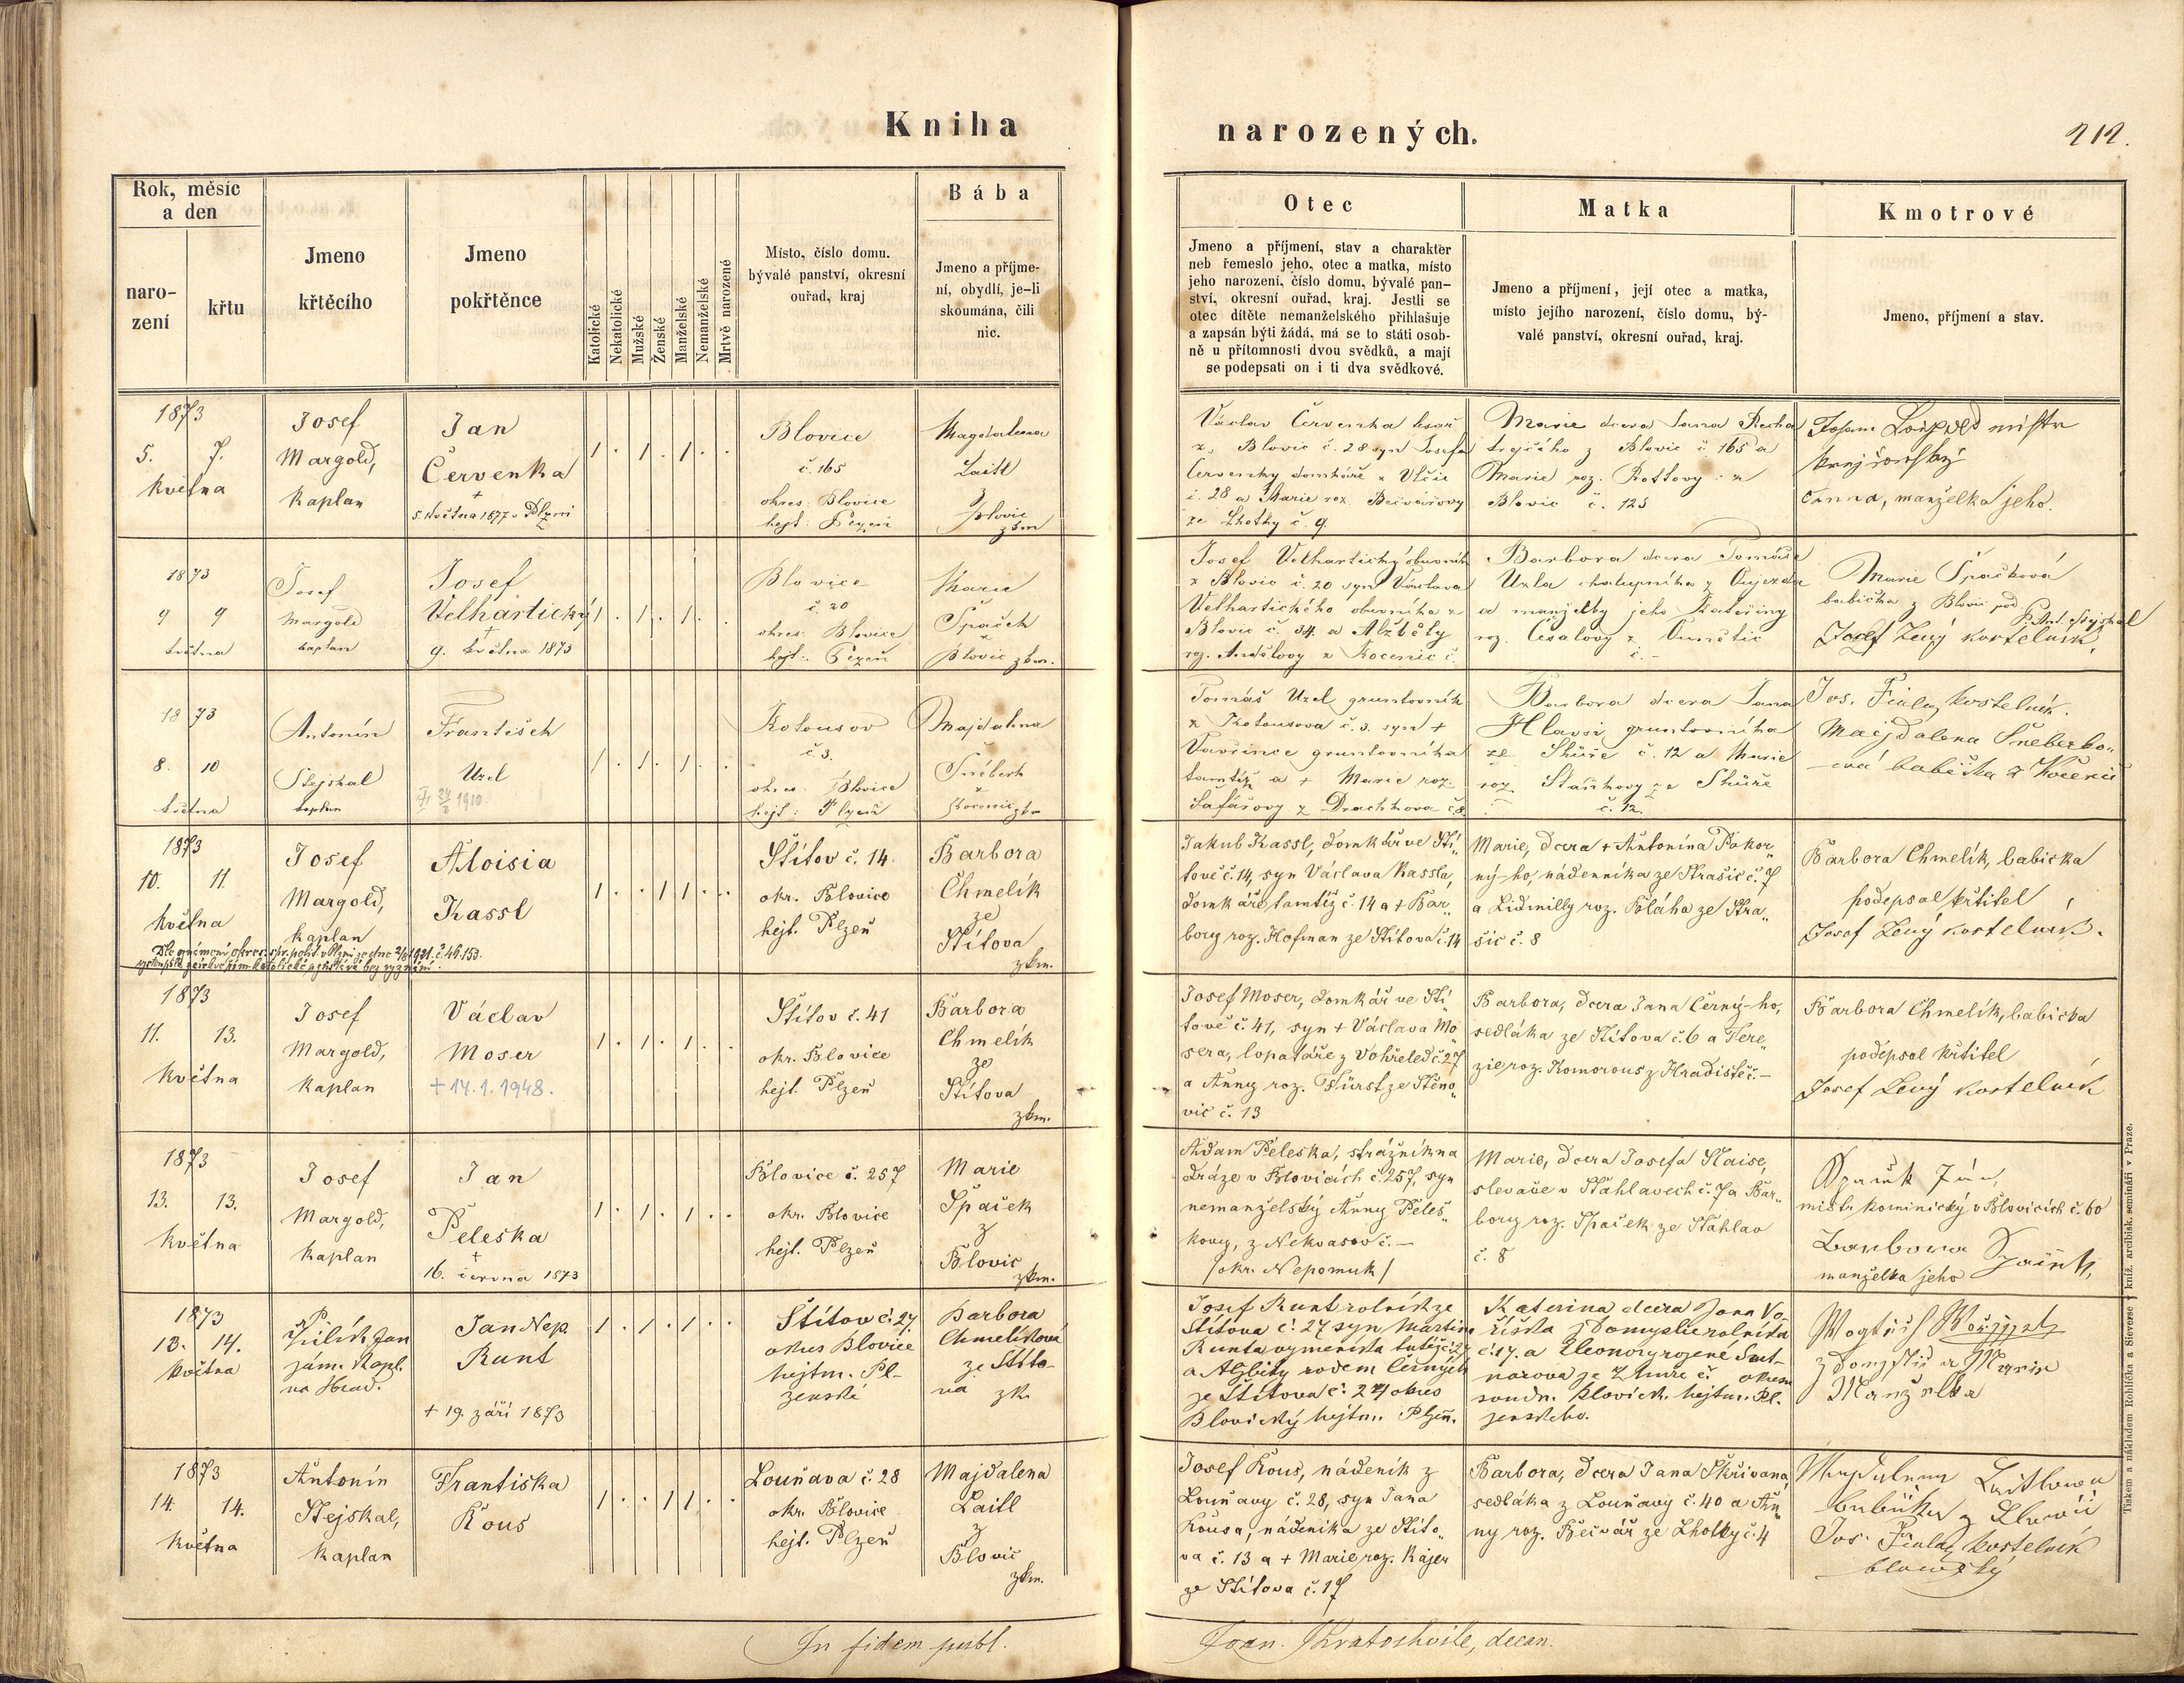 Kniha
narozených.
212.
Rok, měsíc
a den
naro-
zení
křtu
Jmeno
křtěcího
Jmeno
pokřtěnce
Katolické
Nekatolické
Mužské
Ženské
Manželské
Nemanželské
Mrtvě narozené
Místo, číslo domu.
bývalé panství, okresní
ouřad, kraj
Bába
Jmeno a příjme-
ní, obydlí, je-li
skoumána, čili
nic.
Otec
Jmeno a příjmení, stav a charakter
neb řemeslo jeho, otec a matka, místo
jeho narození, číslo domu, bývalé pan-
ství, okresní ouřad, kraj. Jestli se
otec dítěte nemanželského přihlašuje
a zapsán býti žádá, má se to státi osob-
ně u přítomnosti dvou svědků, a mají
se podepsati on i ti dva svědkové.
Matka
Jmeno a příjmení, její otec a matka,
místo jejího narození, číslo domu, bý-
valé panství, okresní ouřad, kraj.
Kmotrové
Jmeno, příjmení a stav.
1873
5. 7.
května
Josef
Margold,
kaplan
Jan
Červenka
+
5. května 1877 v Plzni
1 . 1 . 1 . .
Blovice
č. 165
okres: Blovice
hejt: Plzeň
Magdalena
Laitl
z
Blovic
zkm
Václav Červenka
z Blovic č. 28 syn Josefa
Červenky domkáře z Vlčic
č. 28 a Marie roz. Bečvářovy
ze Lhotky č. 9
Marie dcera Jana
z Blovic č. 165 a
Marie roz. Rottovy z
Blovic č. 125
mistr
krejčovský
Anna, manželka jeho.
1873
9 9
května
Josef
Margold
kaplan
Josef
Velhartický
+
9. května 1873
1 . 1 . 1 . .
Blovice
č. 20
okres: Blovice
hejt: Plzeň
Marie
Špaček
z
Blovic zkm.
Josef Velhartický obuvník
z Blovic č. 20 syn Václava
Velhartického obuvníka z
Blovic č. 54. a Alžběty
roz. Andělovy z Kocenic č.
Barbora dcera Tomáše
Uzla chalupníka z Oujezda
a manželky jeho Kateřiny
roz. Česalovy z
č. -
Marie Špačková
babička z Blovic pod.
P. Ant. Stejskal
Josef Levý kostelník,
1873
8. 10
května
Antonín
Stejskal
kaplan
František
Uzel
1910
1 . 1 . 1 . .
Kotousov
č. 3.
okres: Blovice
hejt: Plzeň
Majdalena
Šnéberk
z
Kocenic zkm
Tomáš Uzel gruntovník
z Kotousova č. 3. syn +
Vavřince gruntovníka
tamtéž a + Marie roz
Šafářovy z Drachkova č. 8
Barbora dcera Jana
Hlavsi gruntovníka
ze Skůře č. 12 a Marie
roz. Staňkovy ze Skůře
č. 12.
Jos. Fiala, kostelník.
Majdalena Šneberko-
vá babička z Kocenic
1873
10. 11.
května
Josef
Margold,
kaplan
Aloisia
Kassl
1 . . 1 1 . .
Štítov č. 14.
okr. Blovice
hejt. Plzeň
Barbora
Chmelík
ze
Štítova
zkm.
Jakub Kassl, domkář ve Ští-
tově č. 14, syn Václava Kassla,
domkáře tamtéž č. 14 a + Bar-
bory roz. Hofman ze Štítova č. 14
Marie, dcera + Antonína Pokor-
ný-ho, nádenníka ze Strašic č. 7
a Lidmilly roz. Bláha ze Stra-
šic č. 8
Barbora Chmelík, babička
podepsal křtitel
Josef Levý kostelník.
1873
11. 13.
května
Josef
Margold,
kaplan
Václav
Moser
+ 14. 1. 1948.
1 . 1 . 1 . .
Štítov č. 41
okr. Blovice
hejt. Plzeň
Barbora
Chmelík
ze
Štítova
zkm.
Josef Moser, domkář ve Ští-
tově č. 41, syn + Václava Mo-
sera, lopatáře z Vohřeled č. 27
a Anny roz. Fürst ze Štěno-
vic č. 13
Barbora, dcera Jana Černý-ho,
sedláka ze Štítova č. 6 a Tere-
zie roz. Komorous z Hradiště č. -
Barbora Chmelík, babička
podepsal křtitel
Josef Levý kostelník
1873
13. 13.
května
Josef
Margold,
kaplan
Jan
Peleska
+
16. června 1873
1 . 1 . 1 . .
Blovice č. 257
okr. Blovice
hejt. Plzeň
Marie
Špaček
z
Blovic
zkm.
Adam Peleska, strážník na
dráze v Blovicích č. 257, syn
nemanželský Anny Peles-
kovy, z Nekvasov č. -
/okr. Nepomuk/
Marie, dcera Josefa Klaise,
slevače v Štáhlavech č. 7 a Bar-
bory roz. Špaček ze Štáhlav
č. 8
mistr kominický v Blovicích č. 60
Barbora
manželka jeho
1873
13. 14.
května
P.
Jan
zám. kapl.
na Hrad.
Jan Nep.
Runt
+ 19. září 1873
1 . 1 . 1 . .
Štítov č. 27
okres Blovice
hejtm. Pl-
zenské
Barbora
Chmelíková
ze Štíto-
va zk.
Josef Runt rolník ze
Štítova č. 27 syn Martina
Runta vyměníka tutéž č. 27
a Alžběty rodem Černých
ze Štítova č. 24 okres
Blovický hejtm. Plzeň.
Kateřina dcera Jana Vo-
říška z Domyslic rolníka
č. 17. a Eleonory rozené
okresu
soudn. Blovick. hejtm. Pl-
zenského.
z Domyslic a Marie
Manželka
1873
14. 14.
května
Antonín
Stejskal,
kaplan
Františka
Kous
1 . . 1 1 . .
Louňava č. 28
okr. Blovice
hejt. Plzeň
Majdalena
Laitl
z
Blovic
zkm.
Josef Kous, nádeník z
Louňavy č. 28, syn Jana
Kousa, nádeníka ze Štíto-
va č. 13 a + Marie roz. Kajer
ze Štítova č. 17
Barbora, dcera Jana Skřivana,
sedláka z Louňavy č. 40 a An-
ny roz. Bečvář ze Lhotky č. 4
Majdalena Laitlova
babička z Blovic
Jos. Fiala, kostelník
blovický
In fidem publ.
Joan. Kratochvile, decan.
Tiskem a nákladem Rohlíčka a Sieverse v kníž. arcibisk. semináři v Praze.